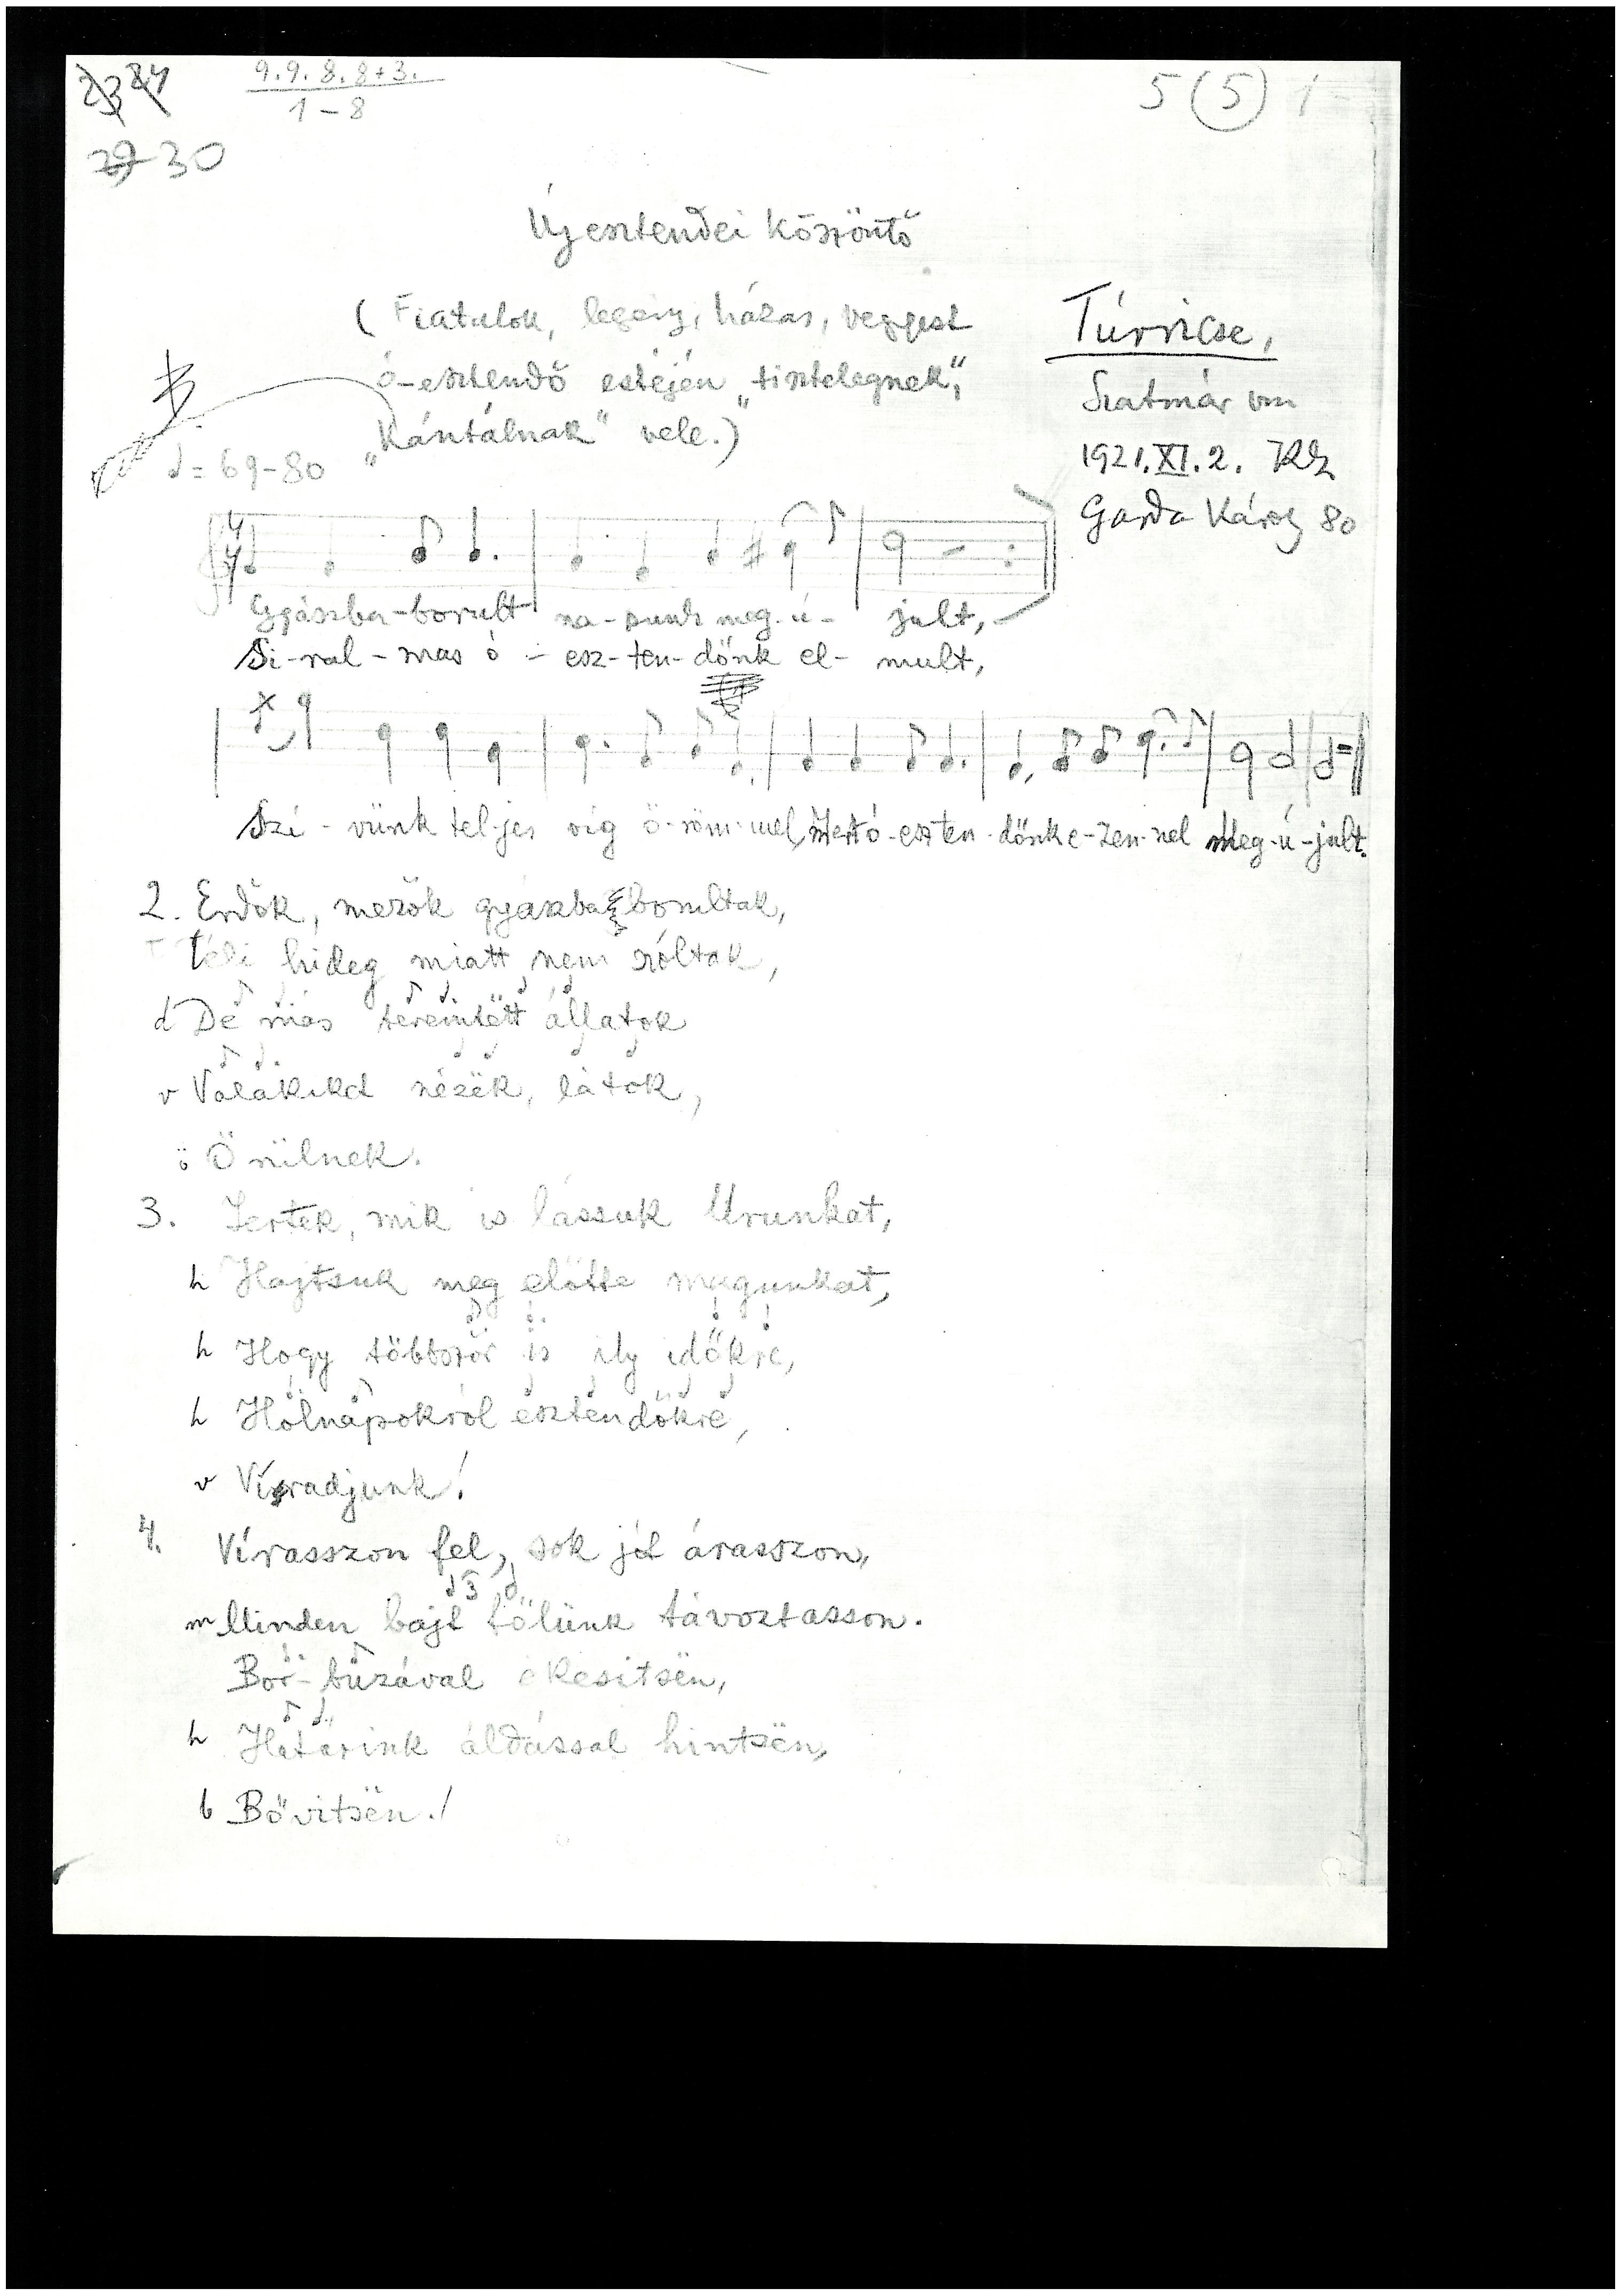 9.9.8.8+3.
1-8
5 (5) 1
29 30
Újesztendei köszöntő
(Fiatalok, legény, házas, vegyest
ó-esztendő estéjén „tisztelegnek",
„Kántálnak" vele.)
♩=69-80
Túrricse,
Szatmár vm
1921.XI.2.
Garda Károly 80
4/4
Gyászba-borult na-punk meg-ú-jult,
Si-ral-mas ó-esz-ten-dőnk el-mult,
Szí-vünk tel-jes víg ö-röm-mel, Mert ó-esz-ten-dőnk e-zen-nel meg-ú-jult.
2. Erdők, mezők gyászba borultak,
Téli hideg miatt nem szóltak,
d De más teremtëtt állatok
v Valakiket nézëk, látok,
ö Örülnek.
3. Jertek, mik is lássuk Urunkat,
h Hajtsuk meg előtte magunkat,
h Hogy többször is ily időkre,
h Hólnapokról esztendőkre,
v Víradjunk!
4. Vírasszon fel, sok jót árasszon,
m Minden bajt tőlünk távoztasson.
Bor-búzával ékesítsën,
h Határink áldással hintsën,
b Bővítsën!